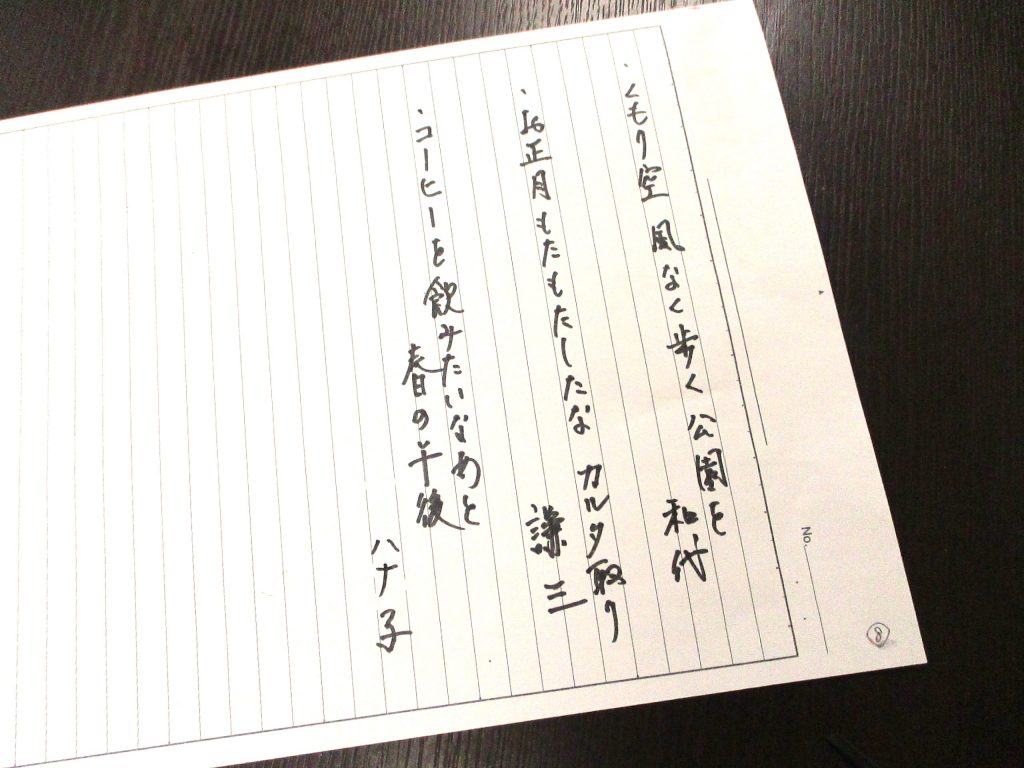 ・くもり空 風なく歩く公園を
和代
・お正月もたもたしたな カルタ取り
謙三
・コーヒーを飲みたいなあと
春の午後
ハナ子
No.
8